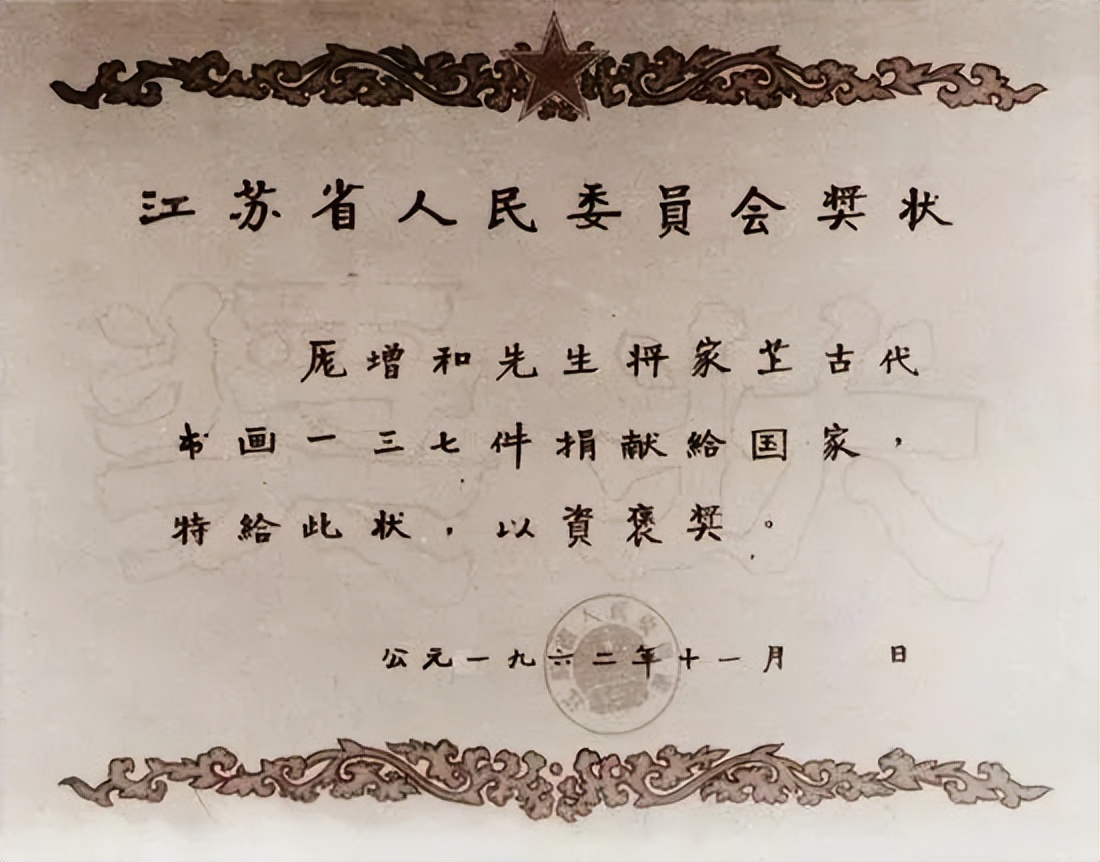 江苏省人民委員会奬状
庞增和先生将家藏古代
书画一三七件捐献給国家，
特給此状，以資褒奬。
公元一九六二年十一月 日